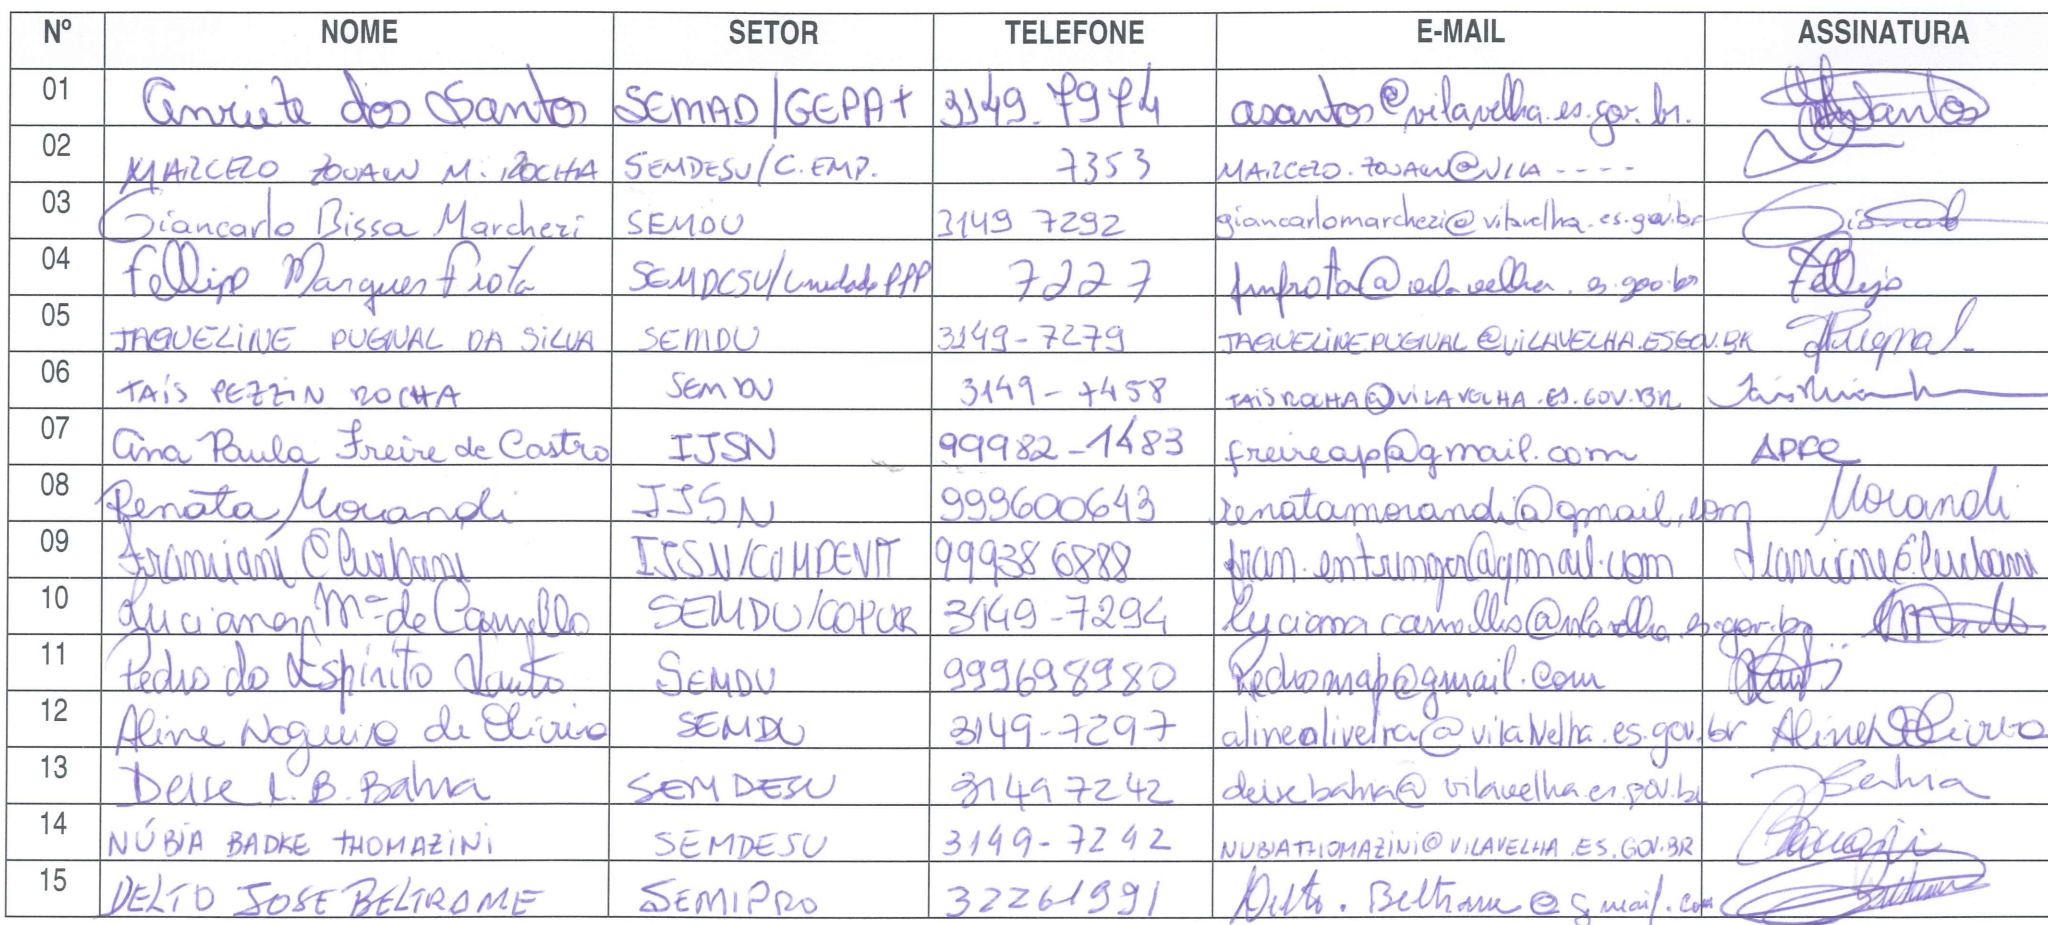 Nº NOME SETOR TELEFONE E-MAIL ASSINATURA
01 Anriete dos Santos SEMAD/GEPAT 3149.7974 asantos@vilavelha.es.gov.br.
02 MARCELO ZOUAIN M. ROCHA SEMDESU/C.EMP. 7353 MARCELO.ZOUAIN@VILA ----
03 Giancarlo Bissa Marchezi SEMDU 3149 7292 giancarlomarchezi@vilavelha.es.gov.br
04 Fellipe Marques Frota SEMDESU/Unidade PPP 7227 fmfrota@vilavelha.es.gov.br
05 JAQUELINE PUGNAL DA SILVA SEMDU 3149-7279 JAQUELINEPUGNAL@VILAVELHA.ESGOV.BR JPugnal
06 TAÍS PEZZIN ROCHA SEMDU 3149-7458 TAISROCHA@VILAVELHA.ES.GOV.BR
07 Ana Paula Freire de Castro IJSN 99982-1483 freireap@gmail.com APFC
08 Renata Morandi IJSN 999600643 renatamorandi@gmail.com Morandi
09 IJSN/COMDEVIT 999386888 fran.entringer@gmail.com
10 Luciana M.ª de Carvalho SEMDU/COPUR 3149-7294
11 Pedro do Espírito Santo SEMDU 999698980 Pedromap@gmail.com
12 Aline Nogueira de Oliveira SEMDU 3149-7297 alineoliveira@vilaVelha.es.gov.br Aline Oliveira
13 Deise L. B. Bahia SEMDESU 3149 7242 deisebahia@vilavelha.es.gov.br Bahia
14 NÚBIA BADKE THOMAZINI SEMDESU 3149-7242 NUBIATHOMAZINI@VILAVELHA.ES.GOV.BR
15 DELTO JOSE BELTRAME SEMIPRO 32261991 Delto.Beltrame@gmail.com